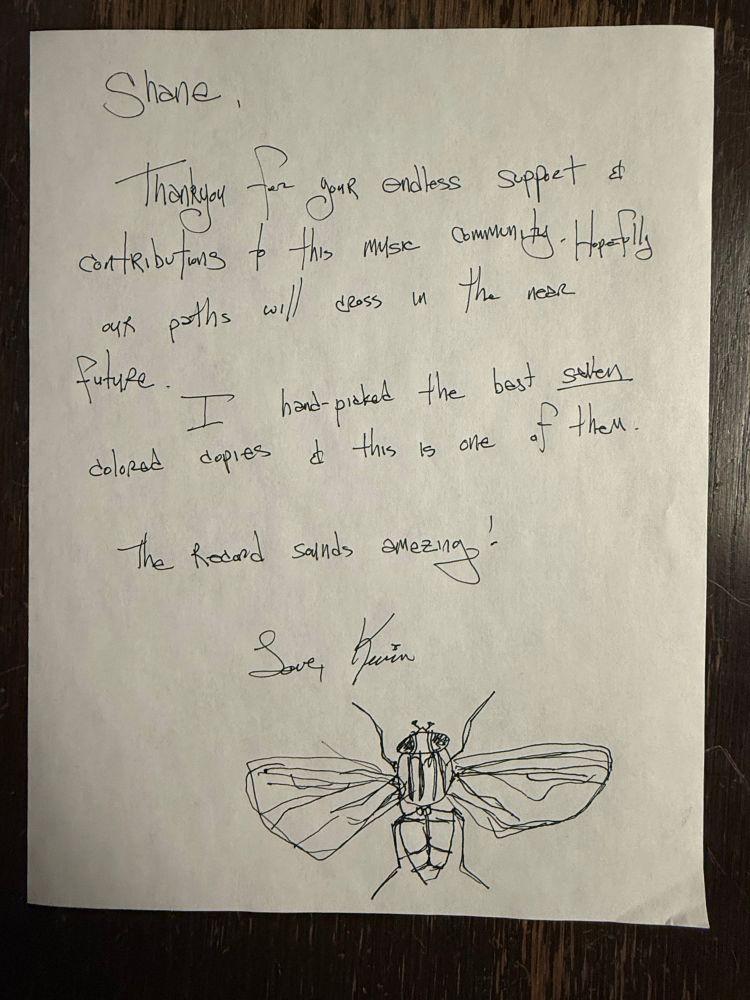 Shane,
Thankyou for your endless support &
contributions to this music community. Hopefully
our paths will cross in the near
future.
I hand-picked the best seven
colored copies & this is one of them.
The Record sounds amazing!
Love, Kevin